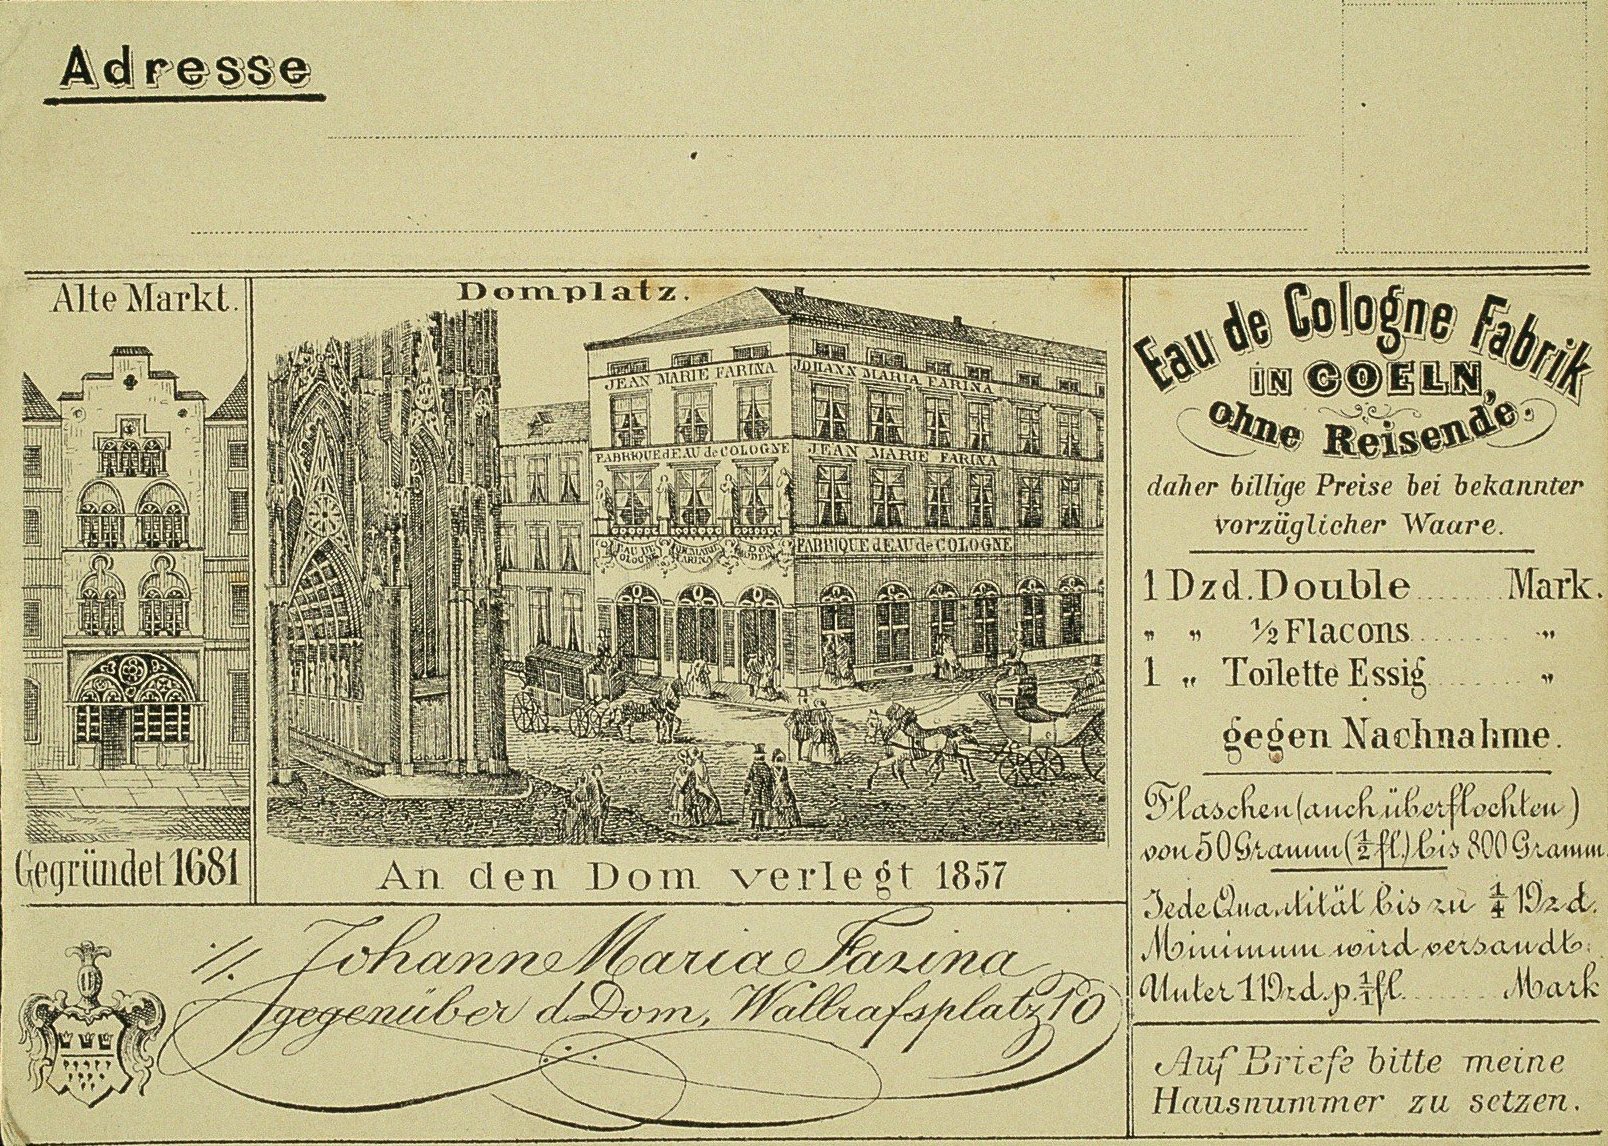 Adresse
Alte Markt.
Gegründet 1681
Domplatz.
JEAN MARIE FARINA
JOHANN MARIA FARINA
FABRIQUE d'EAU de COLOGNE
JEAN MARIE FARINA
EAU DE COLOGNE
FABRIQUE d'EAU de COLOGNE
An den Dom verlegt 1857
Johann Maria Farina
gegenüber d. Dom, Wallrafsplatz 10
Eau de Cologne Fabrik
IN COELN,
ohne Reisende.
daher billige Preise bei bekannter
vorzüglicher Waare.
1 Dzd. Double ....... Mark.
" " ½ Flacons ........ "
1 " Toilette Essig ........ "
gegen Nachnahme.
Flaschen (auch überflochten)
von 50 Gramm (½ fl.) bis 800 Gramm.
Jede Quantität bis zu ¼ Dzd.
Minimum wird versandt.
Unter 1 Dzd. p. 1/1 fl. ........ Mark
Auf Briefe bitte meine
Hausnummer zu setzen.